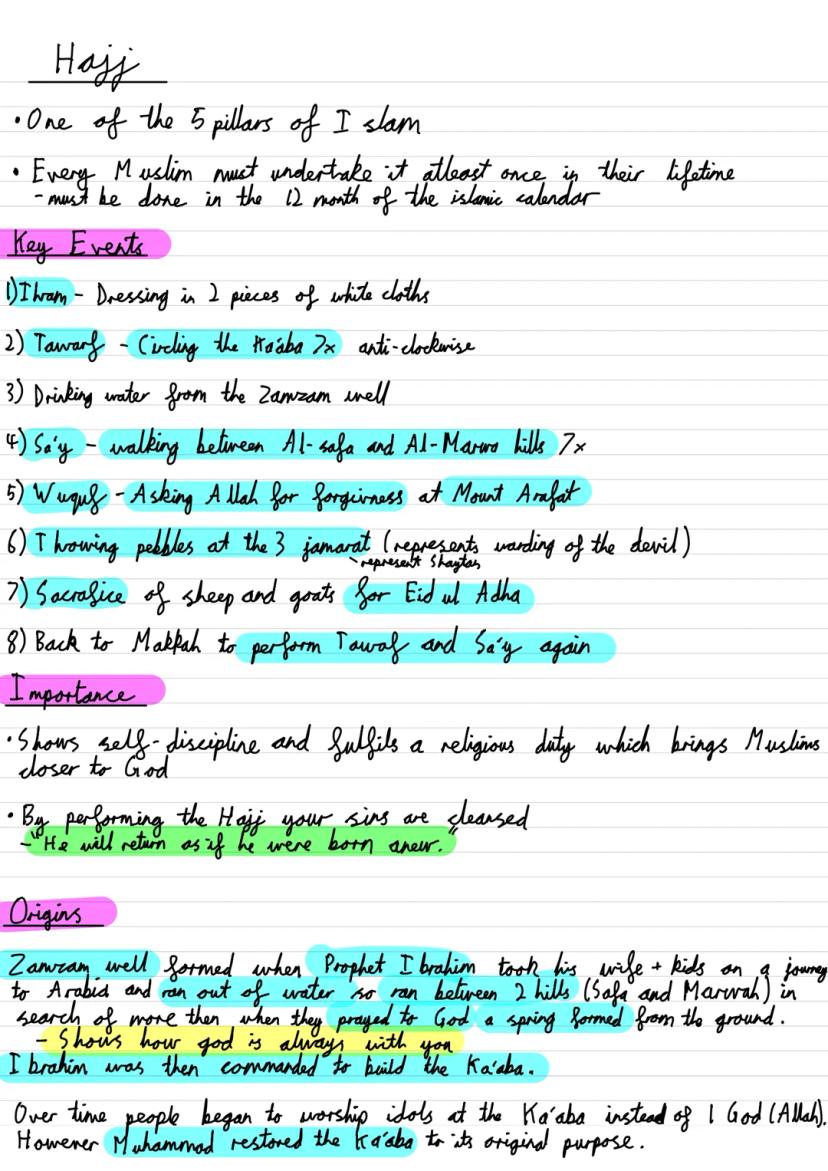 Hajj
• One of the 5 pillars of Islam
• Every Muslim must undertake it atleast once in their lifetime
- must be done in the 12 month of the islamic calendar
Key Events
1) Ihram - Dressing in 2 pieces of white cloths
2) Tawarf - Circling the Ka'aba 7x anti-clockwise
3) Drinking water from the Zamzam well
4) Sa'y - walking between Al-safa and Al-Marwa hills 7x
5) Wuquf - Asking Allah for forgivness at Mount Arafat
6) Throwing pebbles at the 3 jamarat (represents warding of the devil)
- represent Shaytan
7) Sacrafice of sheep and goats for Eid ul Adha
8) Back to Makkah to perform Tawaf and Sa'y again
Importance
• Shows self-discipline and fulfils a religious duty which brings Muslims
closer to God
• By performing the Hajj your sins are cleansed
- "He will return as if he were born anew."
Origins
Zamzam well formed when Prophet Ibrahim took his wife + kids on a journey
to Arabia and ran out of water so ran between 2 hills (Safa and Marwah) in
search of more then when they prayed to God a spring formed from the ground.
- Shows how god is always with you
Ibrahim was then commanded to build the Ka'aba.
Over time people began to worship idols at the Ka'aba instead of 1 God (Allah).
However Muhammad restored the Ka'aba to its original purpose.